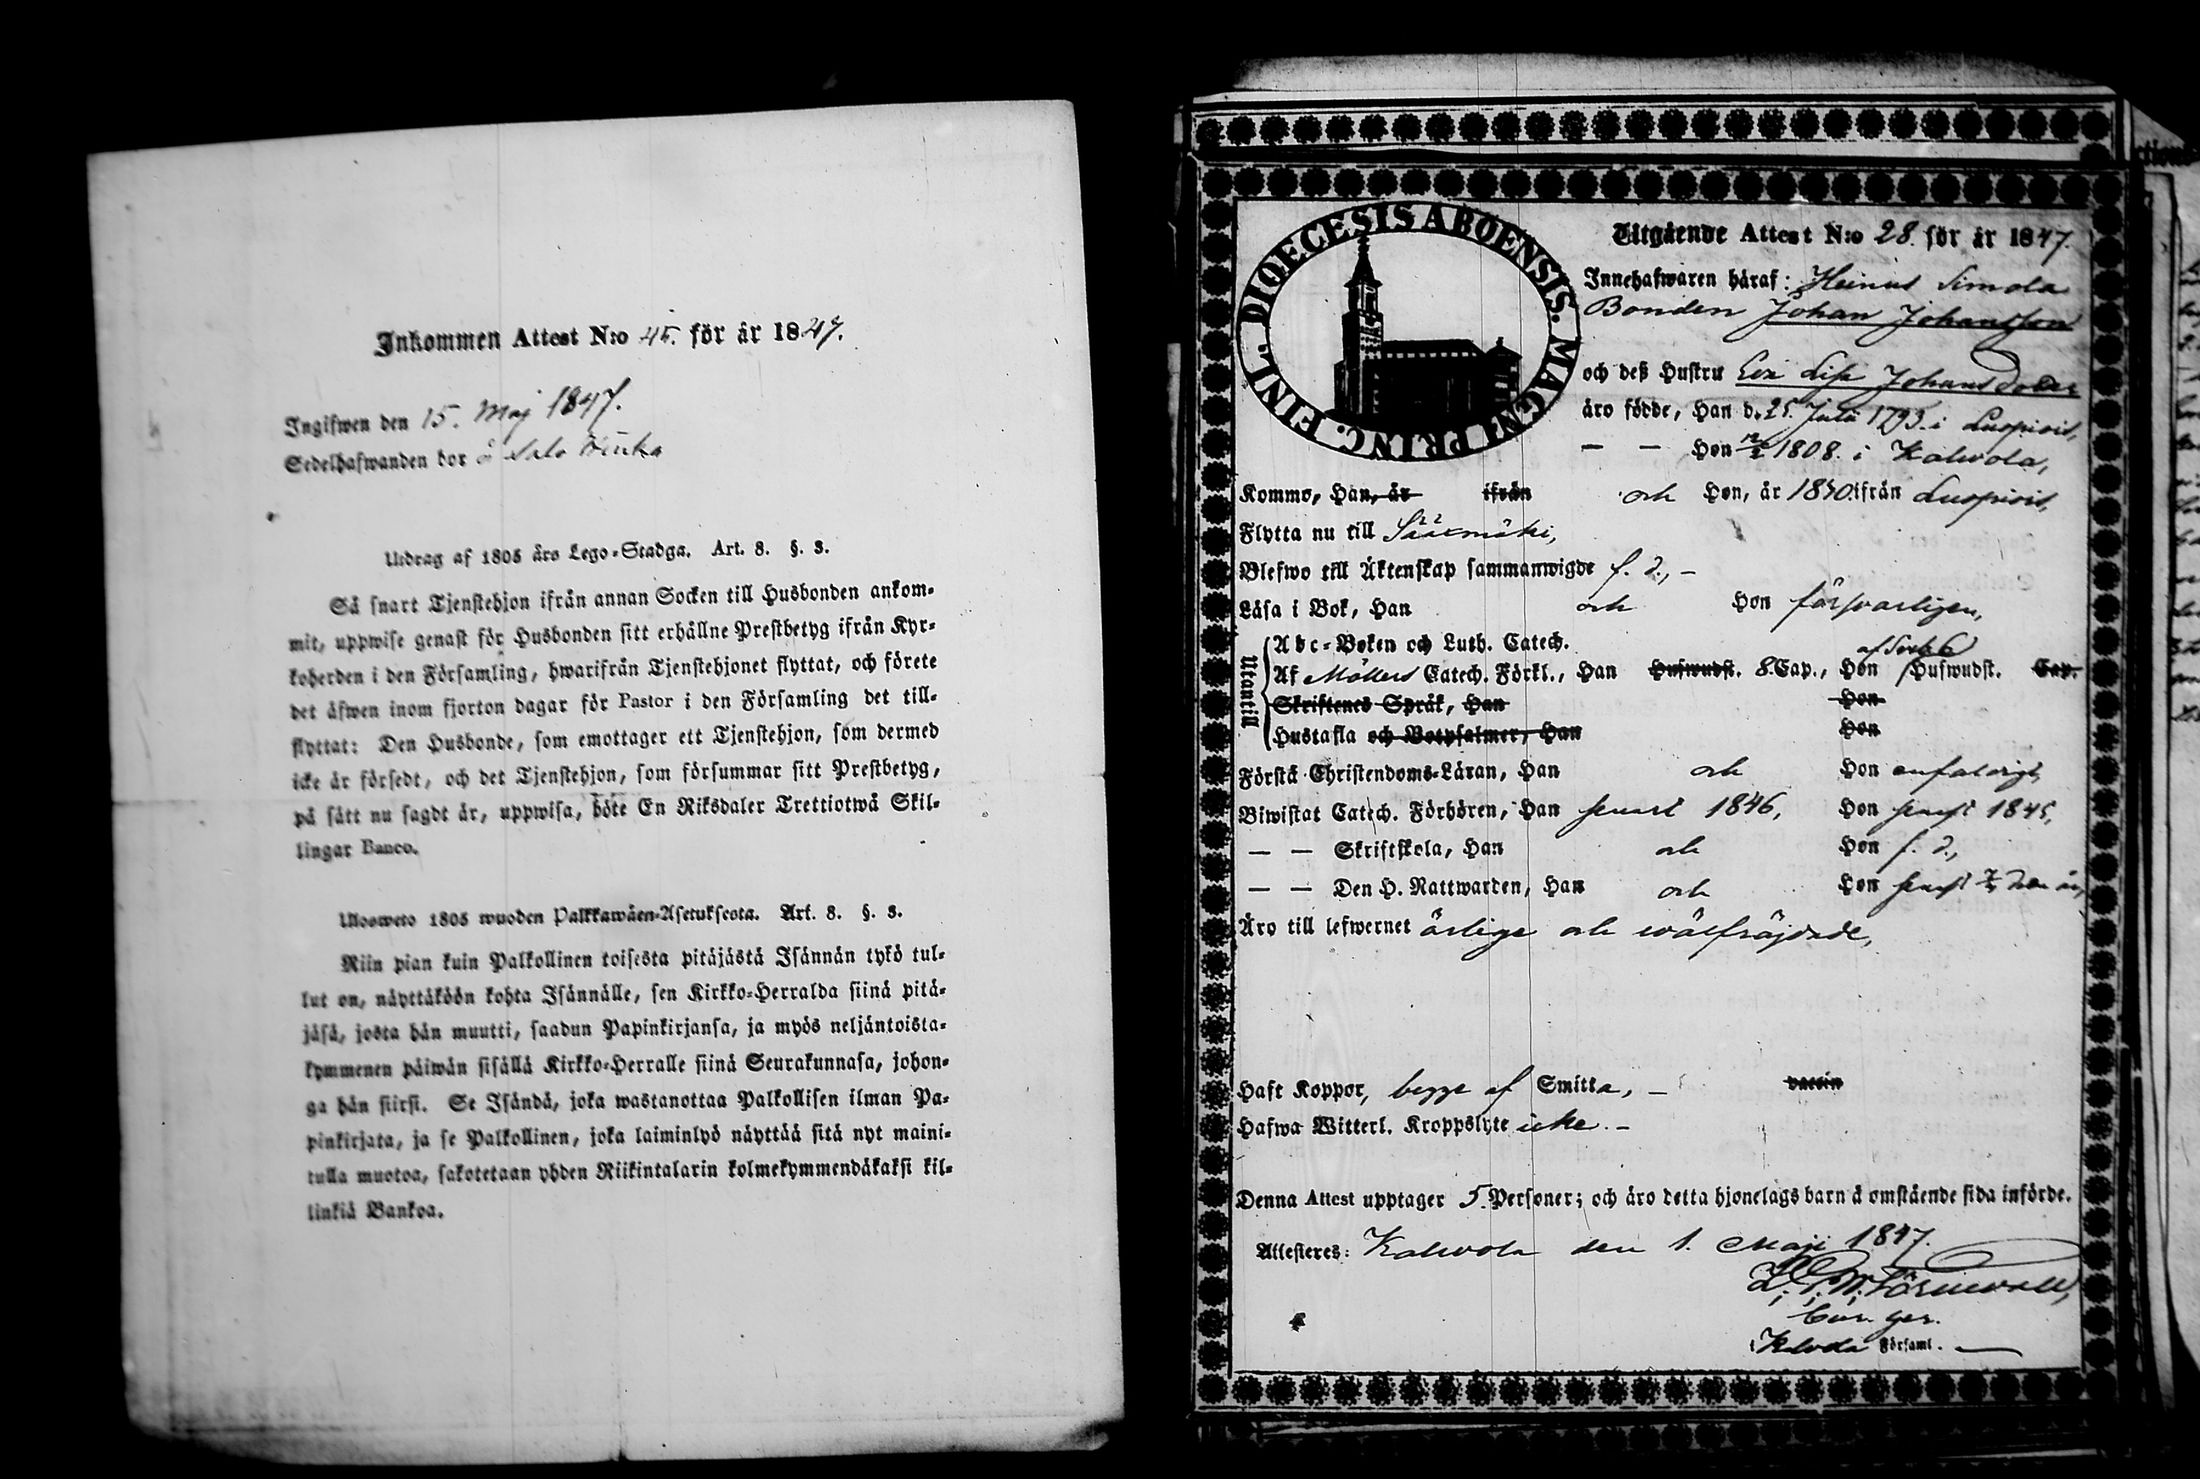 Inkommen Attest N:o 45. för år 1847.
Ingifwen den 15. Maj 1847.
Sedelhafwanden bor å Salo
Utdrag af 1805 års Lego-Stadga. Art. 8. §. 3.
Så snart Tjenstehjon ifrån annan Socken till Husbonden ankom-
mit, uppwise genast för Husbonden sitt erhållne Prestbetyg ifrån Kyr-
koherden i den Församling, hwarifrån Tjenstehjonet flyttat, och förete
det äfwen inom fjorton dagar för Pastor i den Församling det till-
flyttat: Den Husbonde, som emottager ett Tjenstehjon, som dermed
icke är försedt, och det Tjenstehjon, som försummar sitt Prestbetyg,
på sätt nu sagdt är, uppwisa, böte En Riksdaler Trettiotwå Skil-
lingar Banco.
Ulosweto 1805 wuoden Palkkawäen-Asetuksesta. Art. 8. §. 3.
Niin pian kuin Palkollinen toisesta pitäjästä Isännän tykö tul-
lut on, näyttäköön kohta Isännälle, sen Kirkko-Herralda siinä pitä-
jäsä, josta hän muutti, saadun Papinkirjansa, ja myös neljäntoista-
kymmenen päiwän sisällä Kirkko-Herralle siinä Seurakunnasa, johon-
ga hän siirsi. Se Isändä, joka wastanottaa Palkollisen ilman Pa-
pinkirjata, ja se Palkollinen, joka laiminlyö näyttää sitä nyt maini-
tulla muotoa, sakotetaan yhden Riikintalarin kolmekymmendäkaksi kil-
linkiä Bankoa.
DIOECESIS ABOENSIS. MAGNI PRINC. FINL.
Utgående Attest N:o 28. för år 1847.
Innehafwaren häraf: Heinus Simola
Bonden Johan Johansson
och deß Hustru Eva Lisa Johansdoter
äro födde, Han d. 25. Juli 1793. i Luopiois,
— — Hon 1808. i Kalvola,
Kommo, Han, år ifrån och Hon, år 1840. ifrån Luopiois,
Flytta nu till Sääxmäki,
Blefwo till Äktenskap sammanwigde f. d., —
Läsa i Bok, Han och Hon försvarligen,
Utantill
Abc-Boken och Luth. Catech.
Af Möllers Catech. Förkl., Han Hufwudst. 8. Cap., Hon Hufwudst. Cap.
Skriftenes Språk, Han Hon
Hustafla och Botpsalmer, Han Hon
Förstå Christendoms-Läran, Han och Hon enfaldigt,
Biwistat Catech. Förhören, Han senast 1846, Hon senast 1845,
— — Skriftskola, Han och Hon f. d.,
— — Den H. Nattwarden, Han och Hon senast
Äro till lefwernet ärlige och wälfräjdade,
Haft Koppor, begge af Smitta, — vaccin
Hafwa Witterl. Kroppslyte icke. —
Denna Attest upptager 5. Personer; och äro detta hjonelags barn å omstående sida införde.
Attesteres: Kalvola den 1. Maji 1847.
i Kalvola Församl.